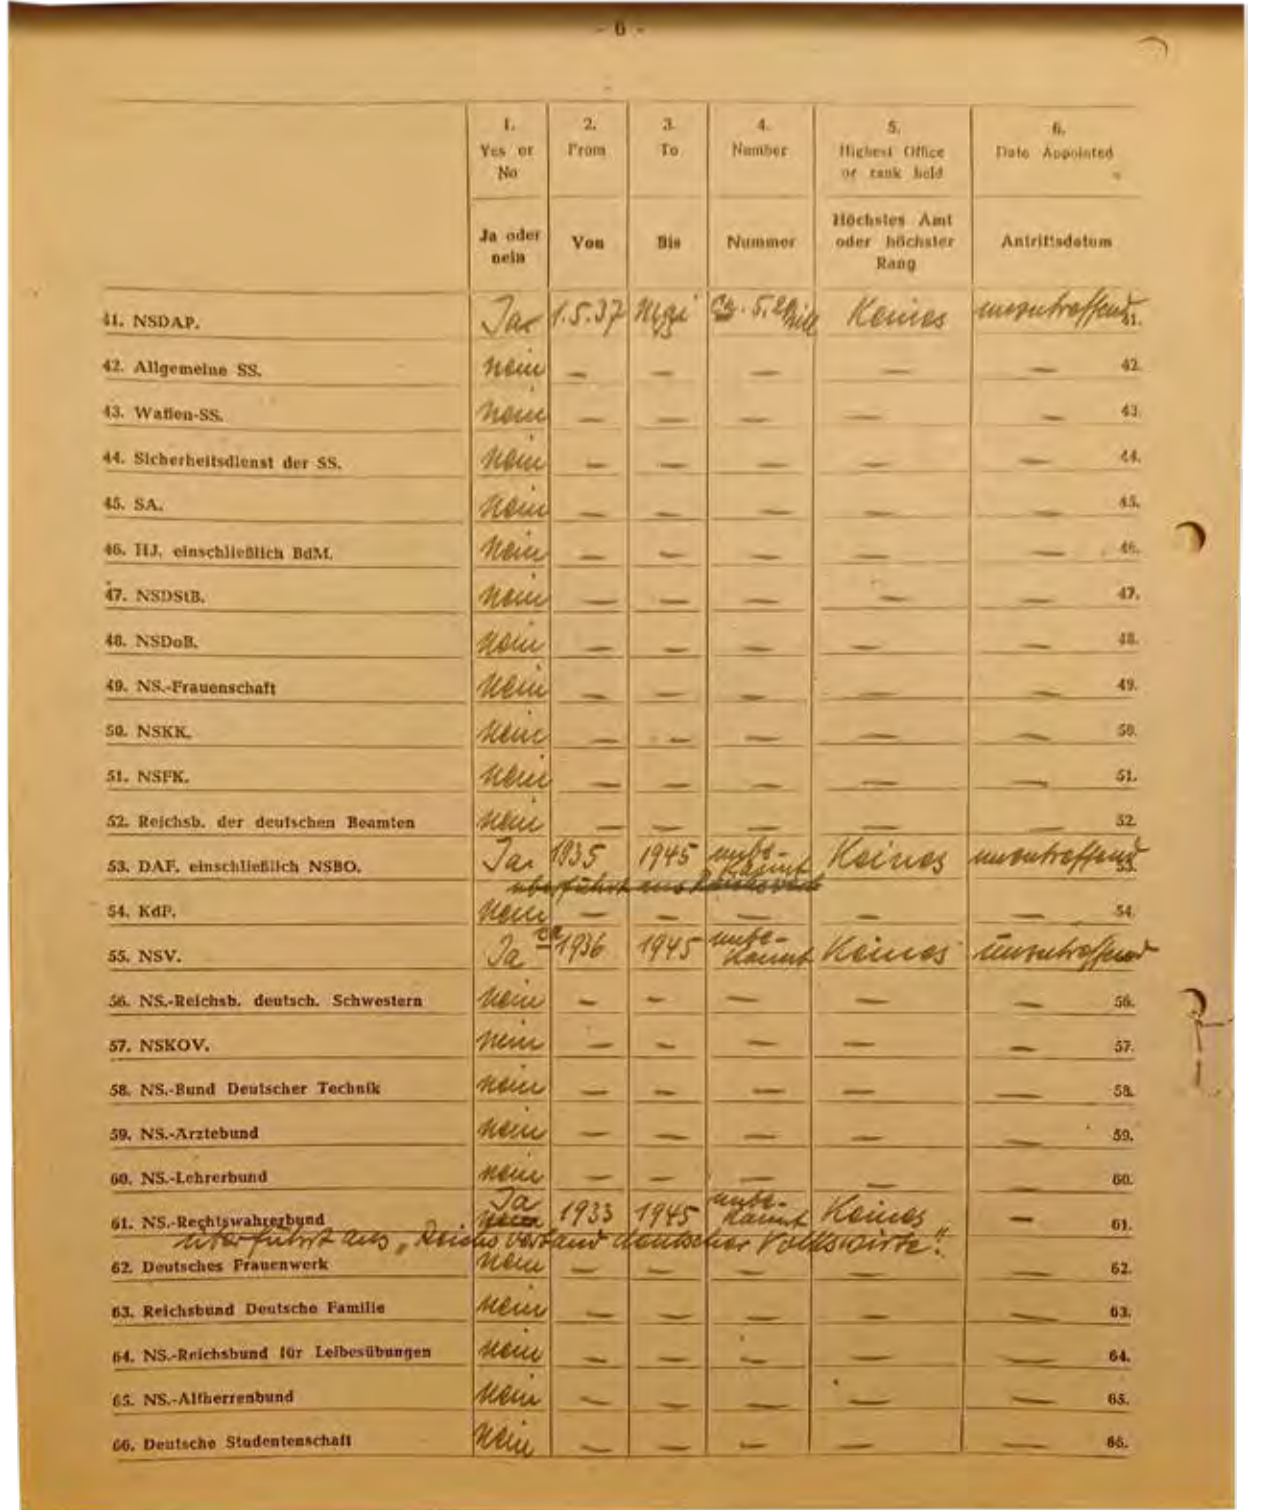 - 6 -
1. 2. 3. 4. 5. 6.
Yes or No From To Number Highest Office or rank held Date Appointed
Ja oder nein Von Bis Nummer Höchstes Amt oder höchster Rang Antrittsdatum
41. NSDAP. Ja 1.5.37 ca. 5.2 Keines unzutreffend 41.
42. Allgemeine SS. nein — — — — — 42.
43. Waffen-SS. nein — — — — — 43.
44. Sicherheitsdienst der SS. nein — — — — — 44.
45. SA. nein — — — — — 45.
46. HJ. einschließlich BdM. nein — — — — — 46.
47. NSDStB. nein — — — — — 47.
48. NSDoB. nein — — — — — 48.
49. NS.-Frauenschaft nein — — — — — 49.
50. NSKK. nein — — — — — 50.
51. NSFK. nein — — — — — 51.
52. Reichsb. der deutschen Beamten nein — — — — — 52.
53. DAF. einschließlich NSBO. Ja 1935 1945 unbe-kannt Keines unzutreffend 53.
überführt aus
54. KdF. nein — — — — — 54.
55. NSV. Ja ca 1936 1945 unbe-kannt Keines unzutreffend
56. NS.-Reichsb. deutsch. Schwestern nein — — — — — 56.
57. NSKOV. nein — — — — — 57.
58. NS.-Bund Deutscher Technik nein — — — — — 58.
59. NS.-Ärztebund nein — — — — — 59.
60. NS.-Lehrerbund nein — — — — — 60.
61. NS.-Rechtswahrerbund Ja nein 1933 1945 unbe-kannt Keines — 61.
überführt aus „Reichsverband deutscher Volkswirte".
62. Deutsches Frauenwerk nein — — — — — 62.
63. Reichsbund Deutsche Familie nein — — — — — 63.
64. NS.-Reichsbund für Leibesübungen nein — — — — — 64.
65. NS.-Altherrenbund nein — — — — — 65.
66. Deutsche Studentenschaft nein — — — — — 66.